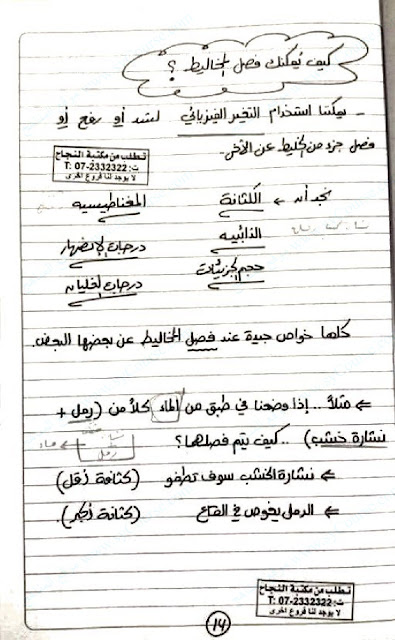 كيف يمكنك فصل المخاليط ؟
- يمكننا استخدام التغير الفيزيائي لشد أو رفع أو
فصل جزء من الخليط عن الآخر.
تطلب من مكتبة النجاح
ت: 2332322-07 :T
لا يوجد لنا فروع اخرى
نجد أن ← الكثافة المغناطيسيه
الذائبيه درجات الإنصهار
حجم الجزيئات درجات الغليان
كلها خواص جيدة عند فصل المخاليط عن بعضها البعض.
← مثلاً .. إذا وضعنا في طبق من الماء كلاً من (رمل +
نشارة خشب) .. كيف يتم فصلها؟
رمل
ماء
← نشارة الخشب سوف تطفو (كثافة أقل)
← الرمل يغوص في القاع (كثافة أكبر).
تطلب من مكتبة النجاح
ت: 2332322-07 :T
لا يوجد لنا فروع اخرى
١٤